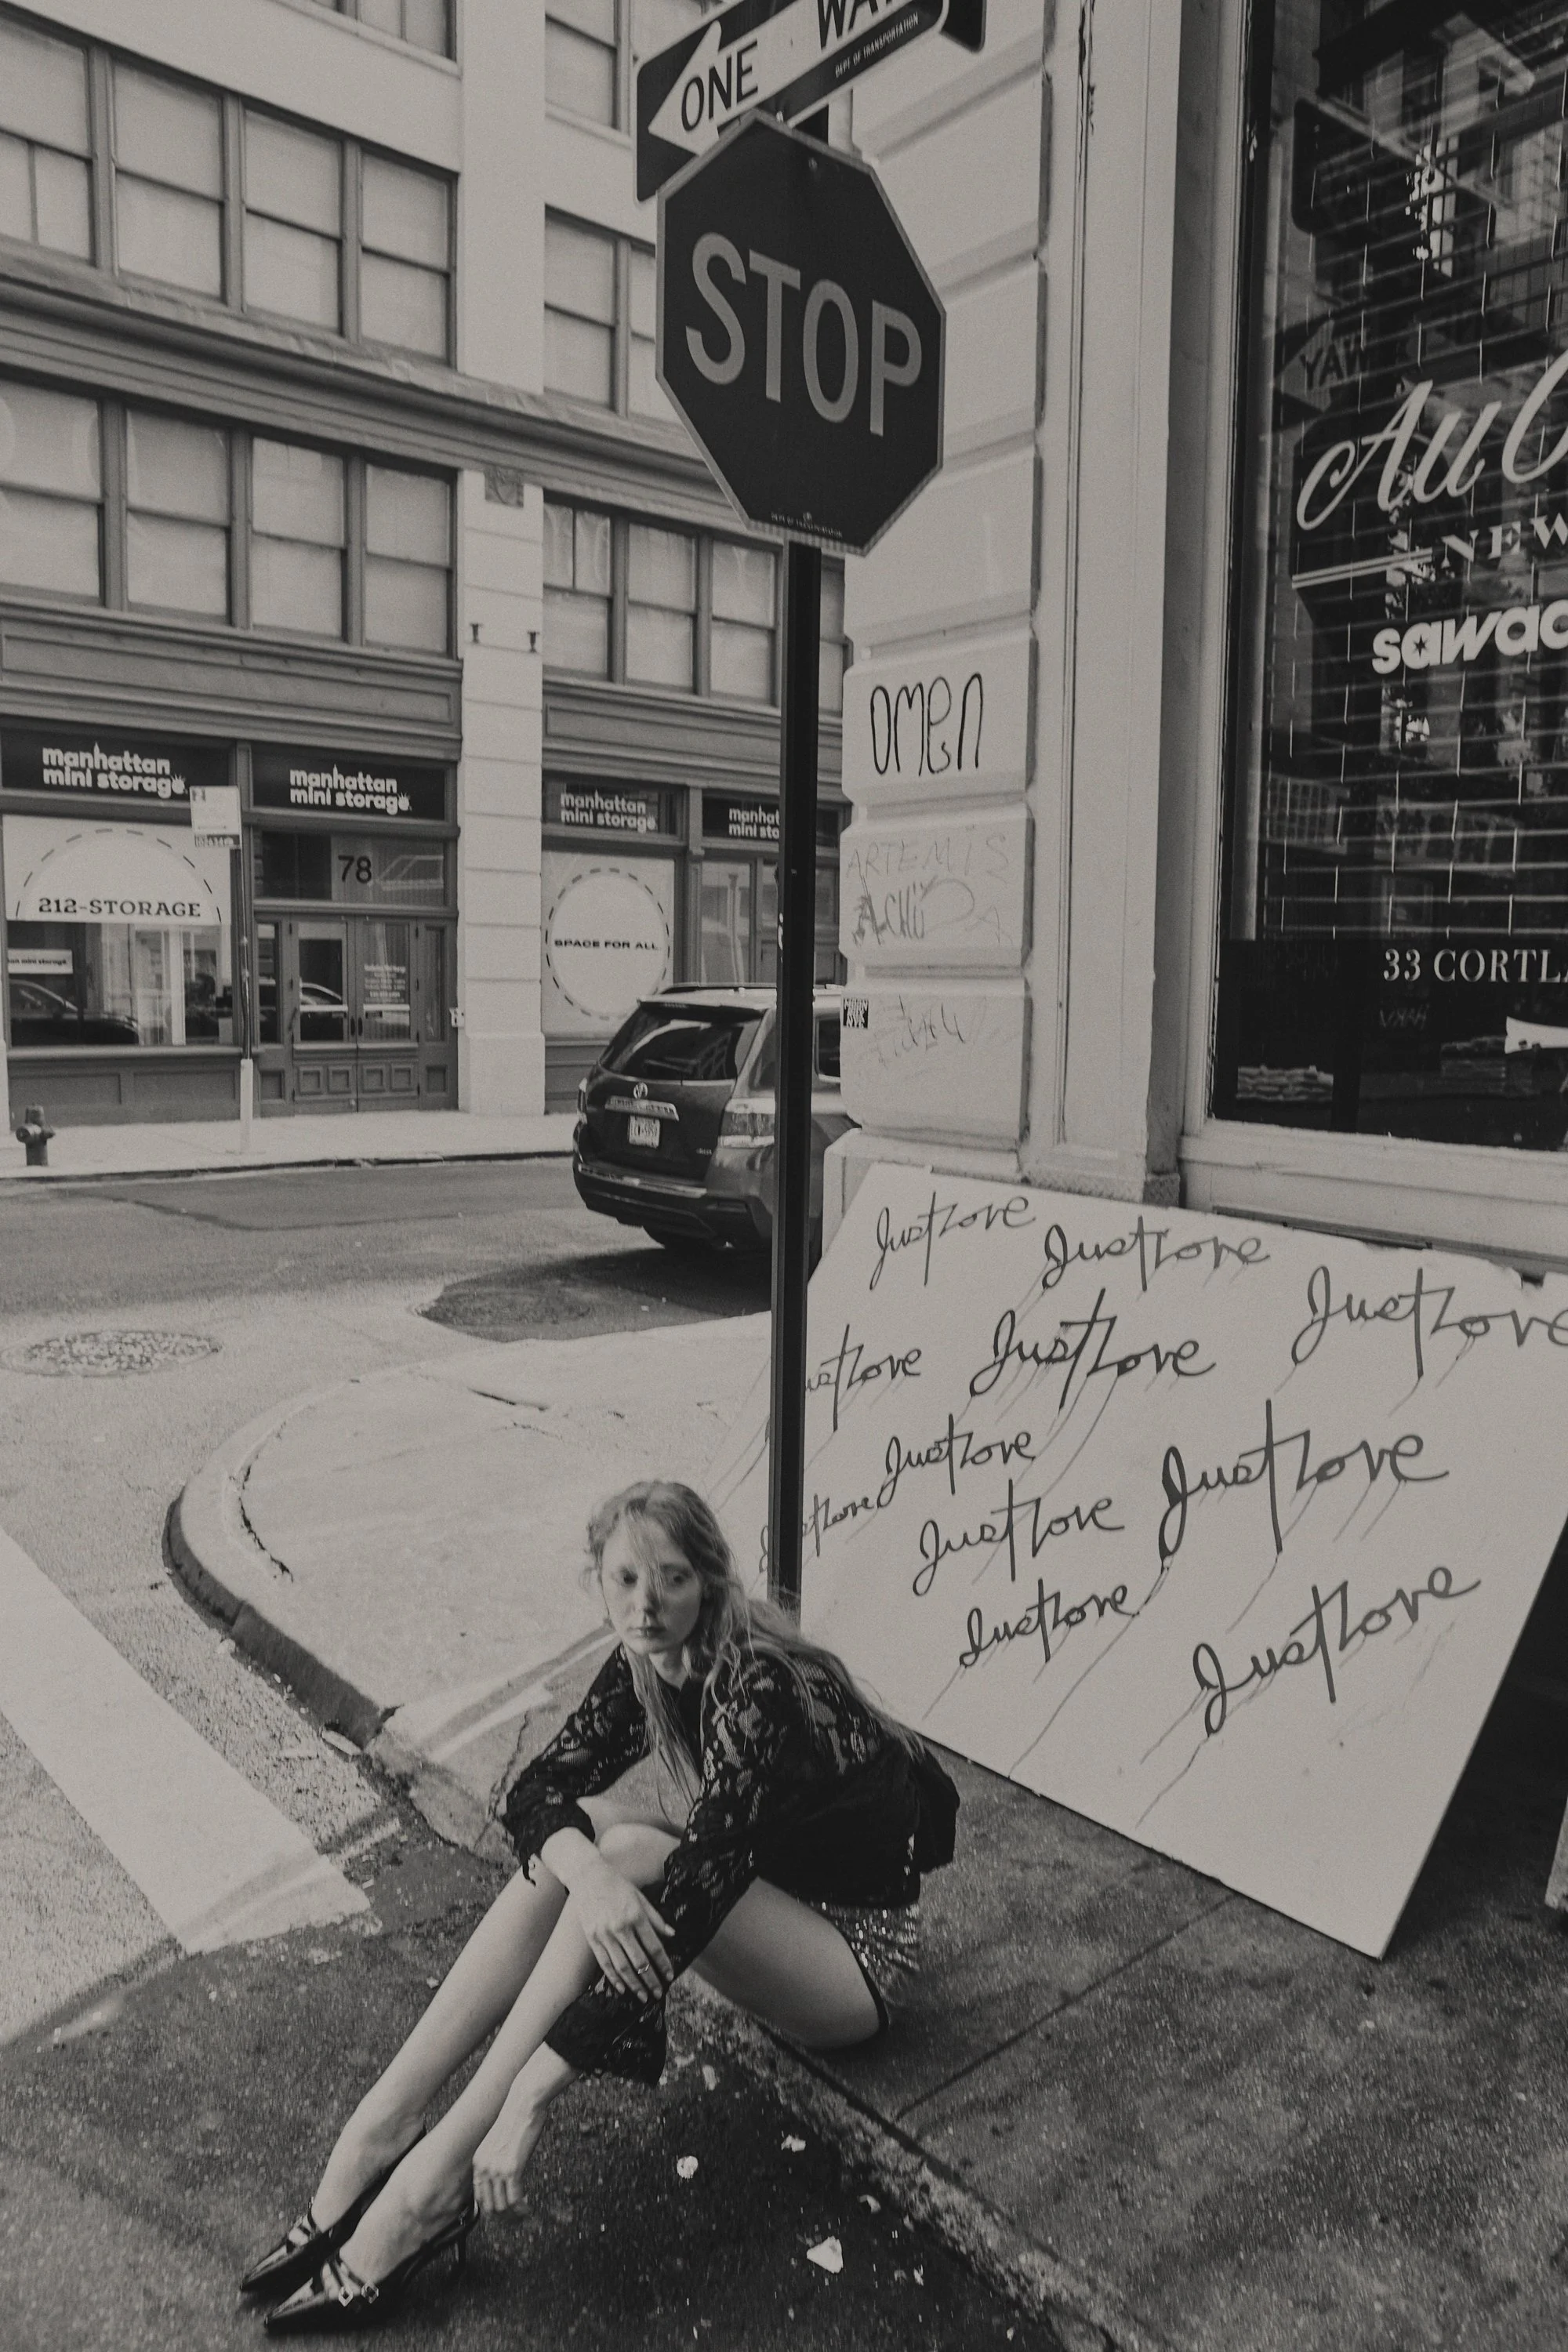 ONE WA
DEPT OF TRANSPORTATION
STOP
Au
NEW
sawad
omen
ARTEMIS
manhattan
mini storage
manhattan
mini storage
manhattan
mini storage
manhat
mini sto
78
212-STORAGE
SPACE FOR ALL
33 CORTL
JustLove
JustLove
JustLove
ustLove
JustLove
JustLove
JustLove
JustLove
JustLove
JustLove
JustLove